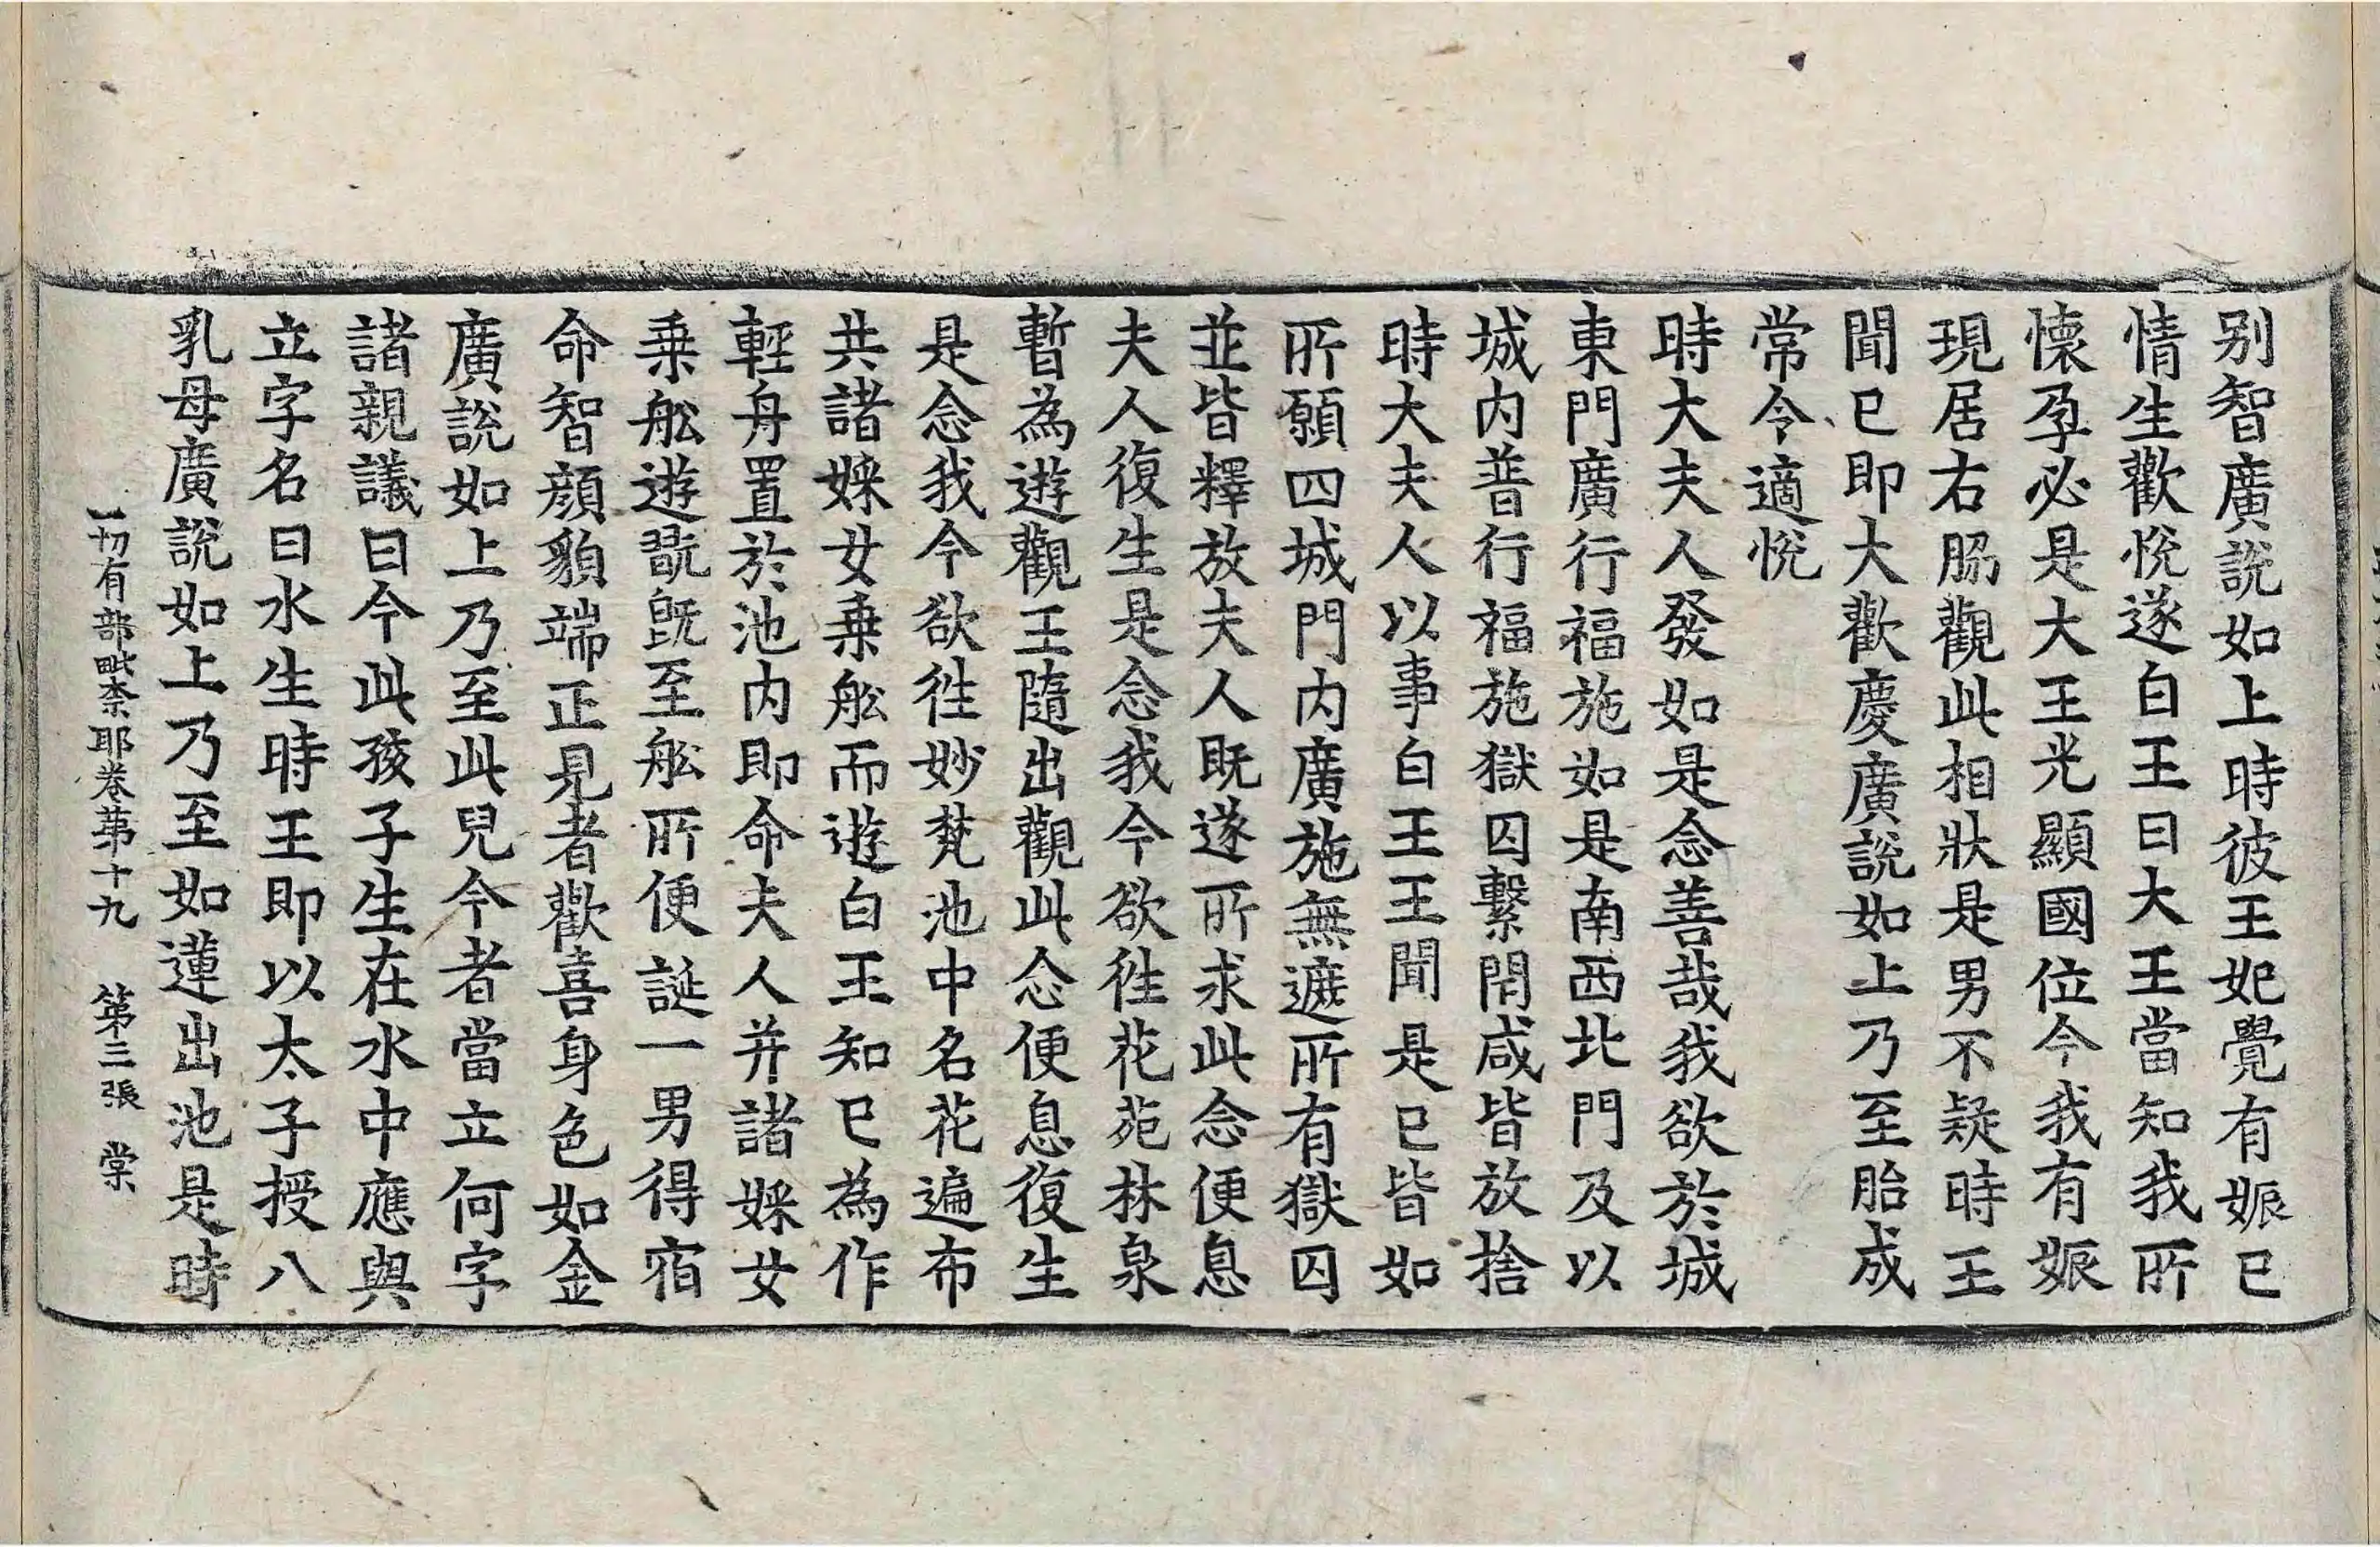 别智廣說如上時彼王妃覺有娠已
情生歡悅遂白王曰大王當知我所
懷孕必是大王光顯國位今我有娠
現居右脇觀此相狀是男不疑時王
聞已即大歡慶廣說如上乃至胎成
常令適悅
時大夫人發如是念善哉我欲於城
東門廣行福施如是南西北門及以
城内普行福施獄囚繫閇咸皆放捨
時大夫人以事白王王聞是已皆如
所願四城門内廣施無遮所有獄囚
並皆釋放夫人既遂所求此念便息
夫人復生是念我今欲往花苑林泉
暫為遊觀王隨出觀此念便息復生
是念我今欲往妙梵池中名花遍布
共諸婇女乗舩而遊白王知已為作
輕舟置於池内即命夫人并諸婇女
乗舩遊翫既至舩所便誕一男得宿
命智顔貌端正見者歡喜身色如金
廣說如上乃至此兒今者當立何字
諸親議曰今此孩子生在水中應與
立字名曰水生時王即以太子授八
乳母廣說如上乃至如蓮出池是時
一切有部毗奈耶卷苐十九 第三張 棠